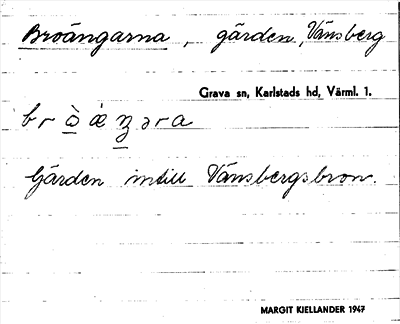 Broängarna, gärden, Vänsberg
Grava sn, Karlstads hd, Värml. 1.
Gärden intill Vänsbergsbron.
MARGIT KIELLANDER 1947